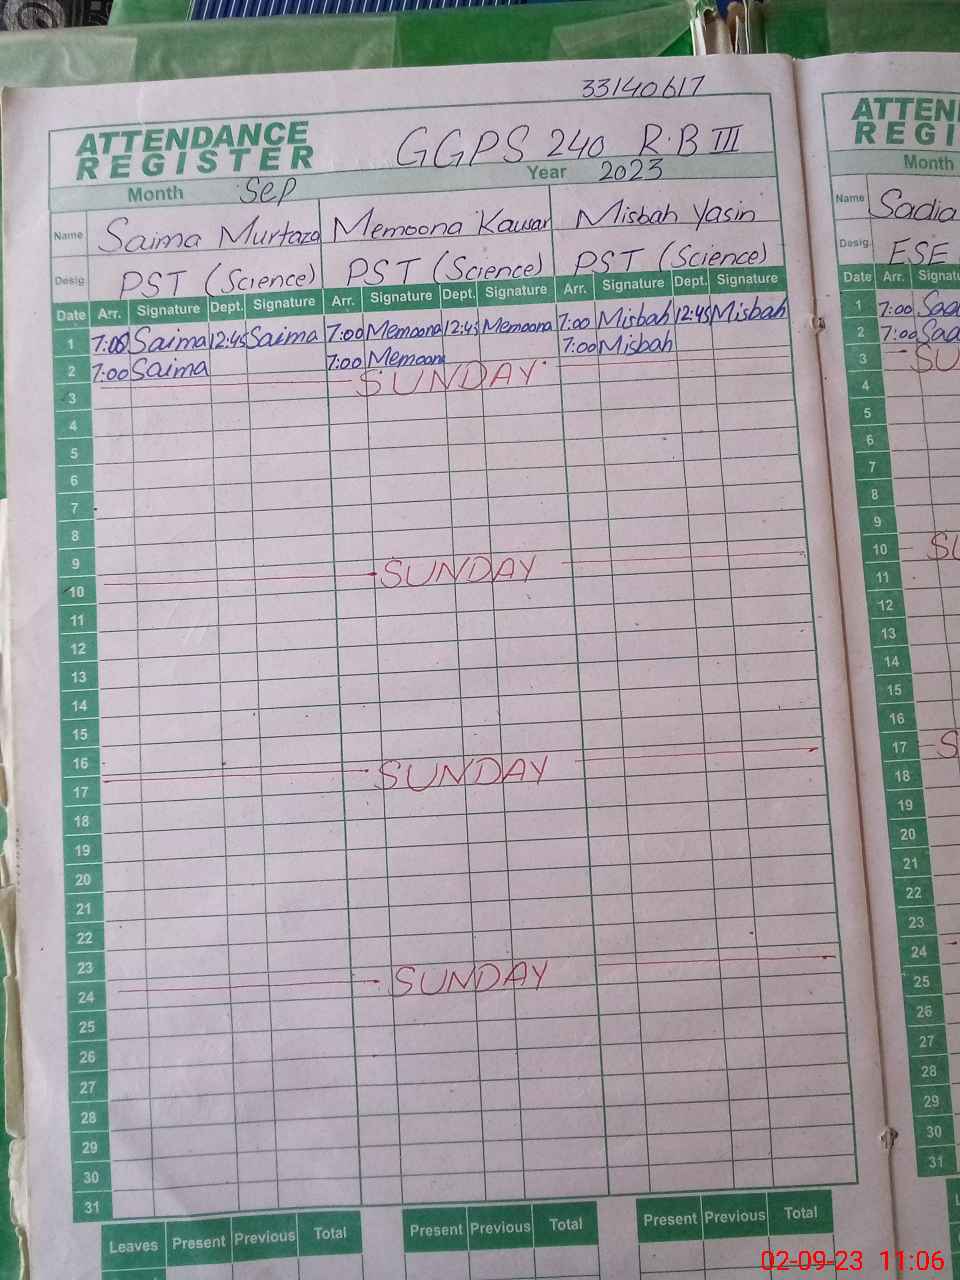 33140617
ATTENDANCE REGISTER GGPS 240 R.B III
Month Sep Year 2023
Name Saima Murtaza Memoona Kausar Misbah Yasin
Desig. PST (Science) PST (Science) PST (Science)
Date Arr. Signature Dept. Signature Arr. Signature Dept. Signature Arr. Signature Dept. Signature
1 7:00 Saima 12:45 Saima 7:00 Memoona 12:45 Memoona 7:00 Misbah 12:45 Misbah
2 7:00 Saima 7:00 Memoona 7:00 Misbah
3 SUNDAY
4
5
6
7
8
9
10 SUNDAY
11
12
13
14
15
16
17 SUNDAY
18
19
20
21
22
23
24 SUNDAY
25
26
27
28
29
30
31
Leaves Present Previous Total Present Previous Total Present Previous Total
ATTEN
REGI
Month
Name Sadia
Desig. ESE
Date Arr. Signatu
1 7:00 Saa
2 7:00 Saa
3 SU
4
5
6
7
8
9
10 SU
11
12
13
14
15
16
17 S
18
19
20
21
22
23
24
25
26
27
28
29
30
31
02-09-23 11:06